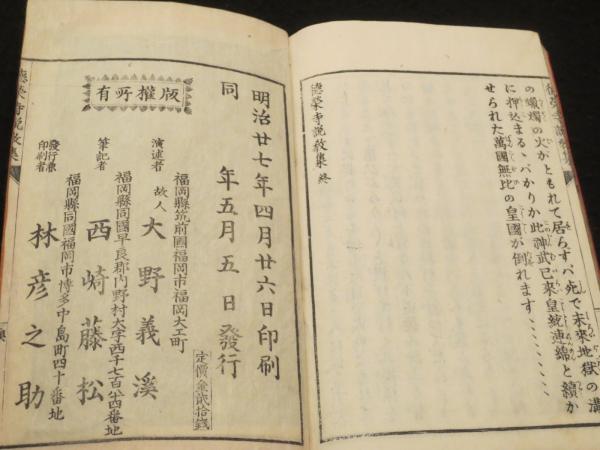 の蠟燭の火がともれて居らずバ死で未來地獄の溝
に押込まるゝバかりか此神武已來皇統連綿と續か
せられた萬國無比の皇國が倒れます、、、、、、、、
德榮寺說敎集 終
明治廿七年四月廿六日印刷
同 年五月五日發行
定價金貳拾錢
版權所有
福岡縣筑前國福岡市福岡大工町
演述者 故人 大野義溪
福岡縣同國早良郡內野村大字西千七百八十四番地
筆記者 西崎藤松
福岡縣同國福岡市博多中島町四十番地
發行兼印刷者 林彦之助
德榮寺說敎集